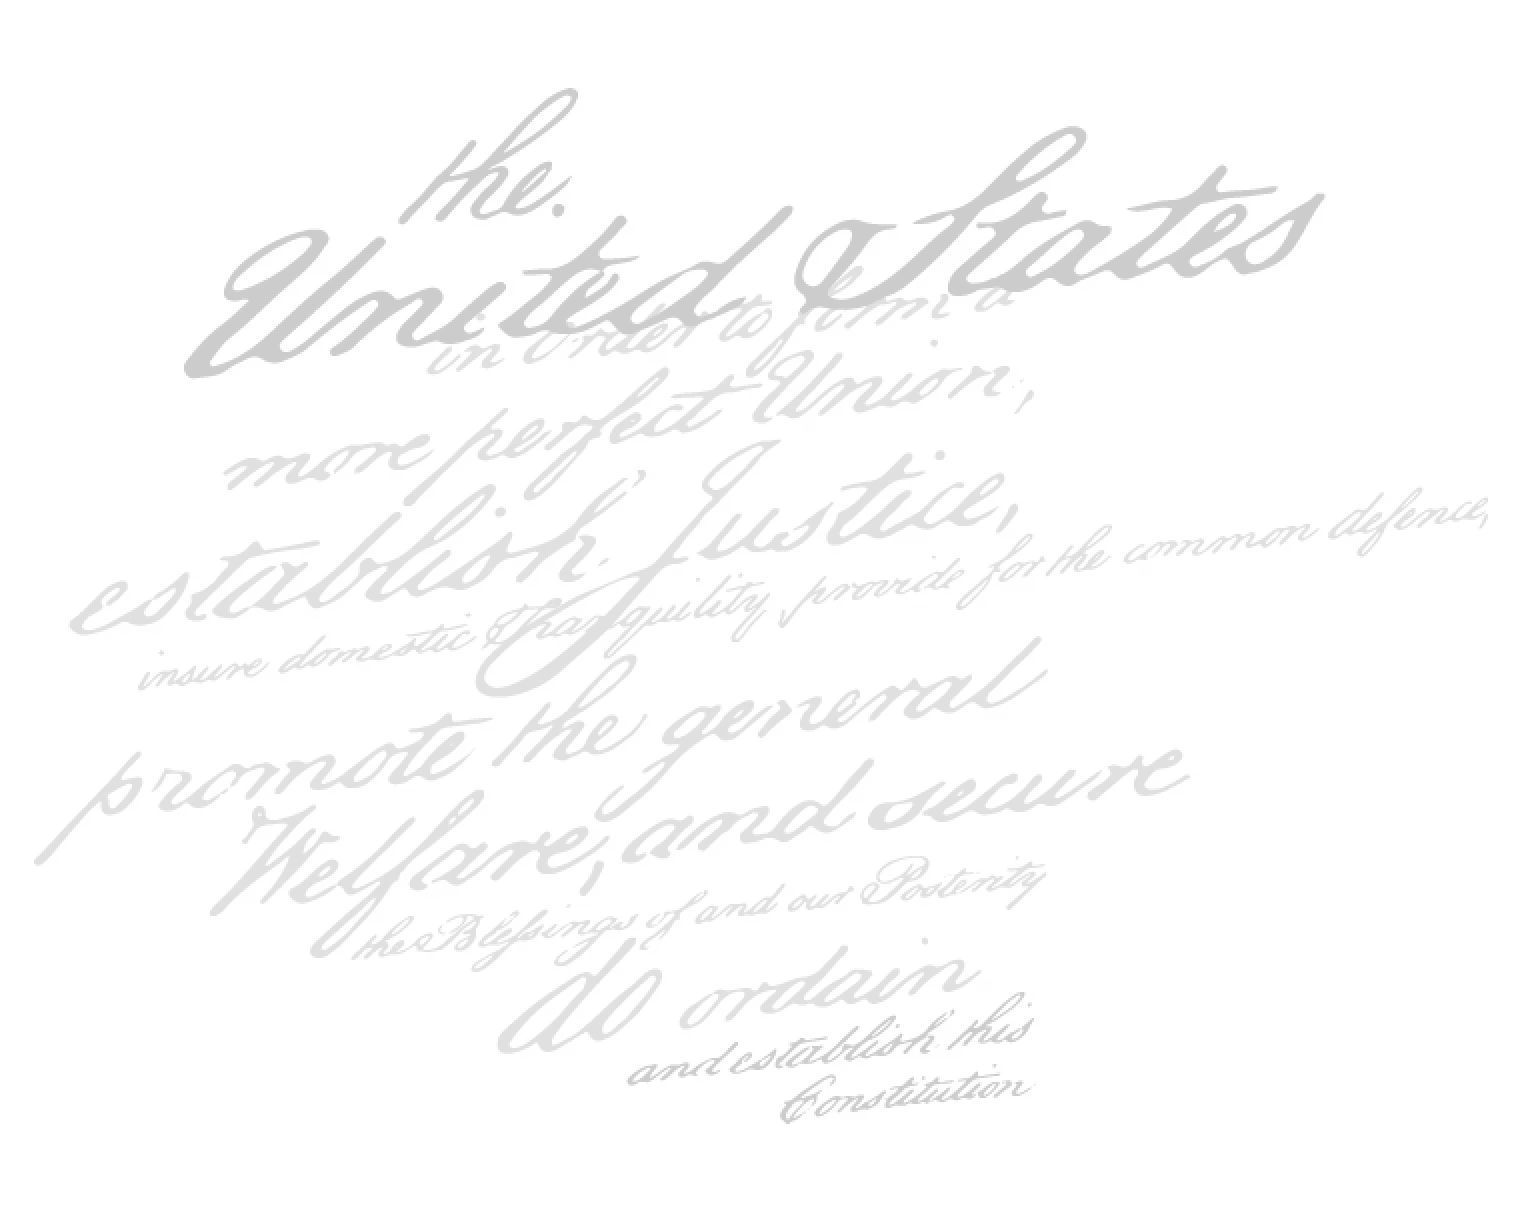 the.
United States
in Order to form a
more perfect Union,
establish Justice,
insure domestic Tranquility, provide for the common defence,
promote the general
Welfare, and secure
the Blessings of and our Posterity
do ordain
and establish this
Constitution